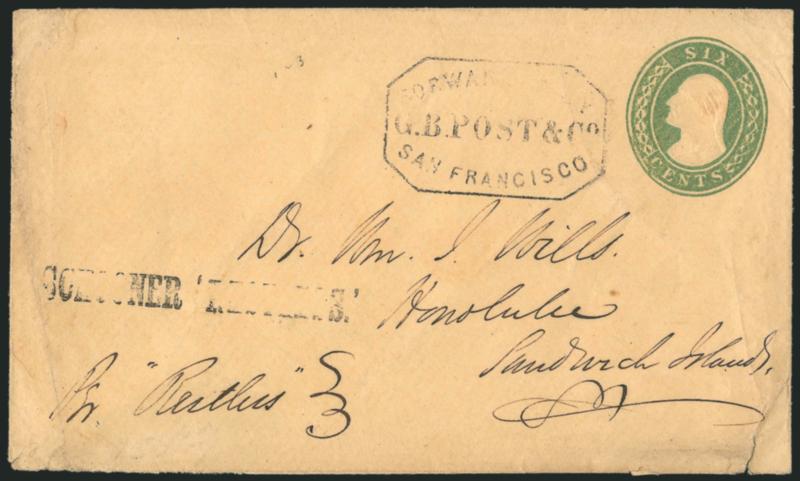 SIX
CENTS
FORWARDED BY
G.B. POST & Co
SAN FRANCISCO
Dr. Wm. J. Wills.
SCHOONER 'RESTLESS.'
Honolulu
Sandwich Islands,
Pr. "Restless"